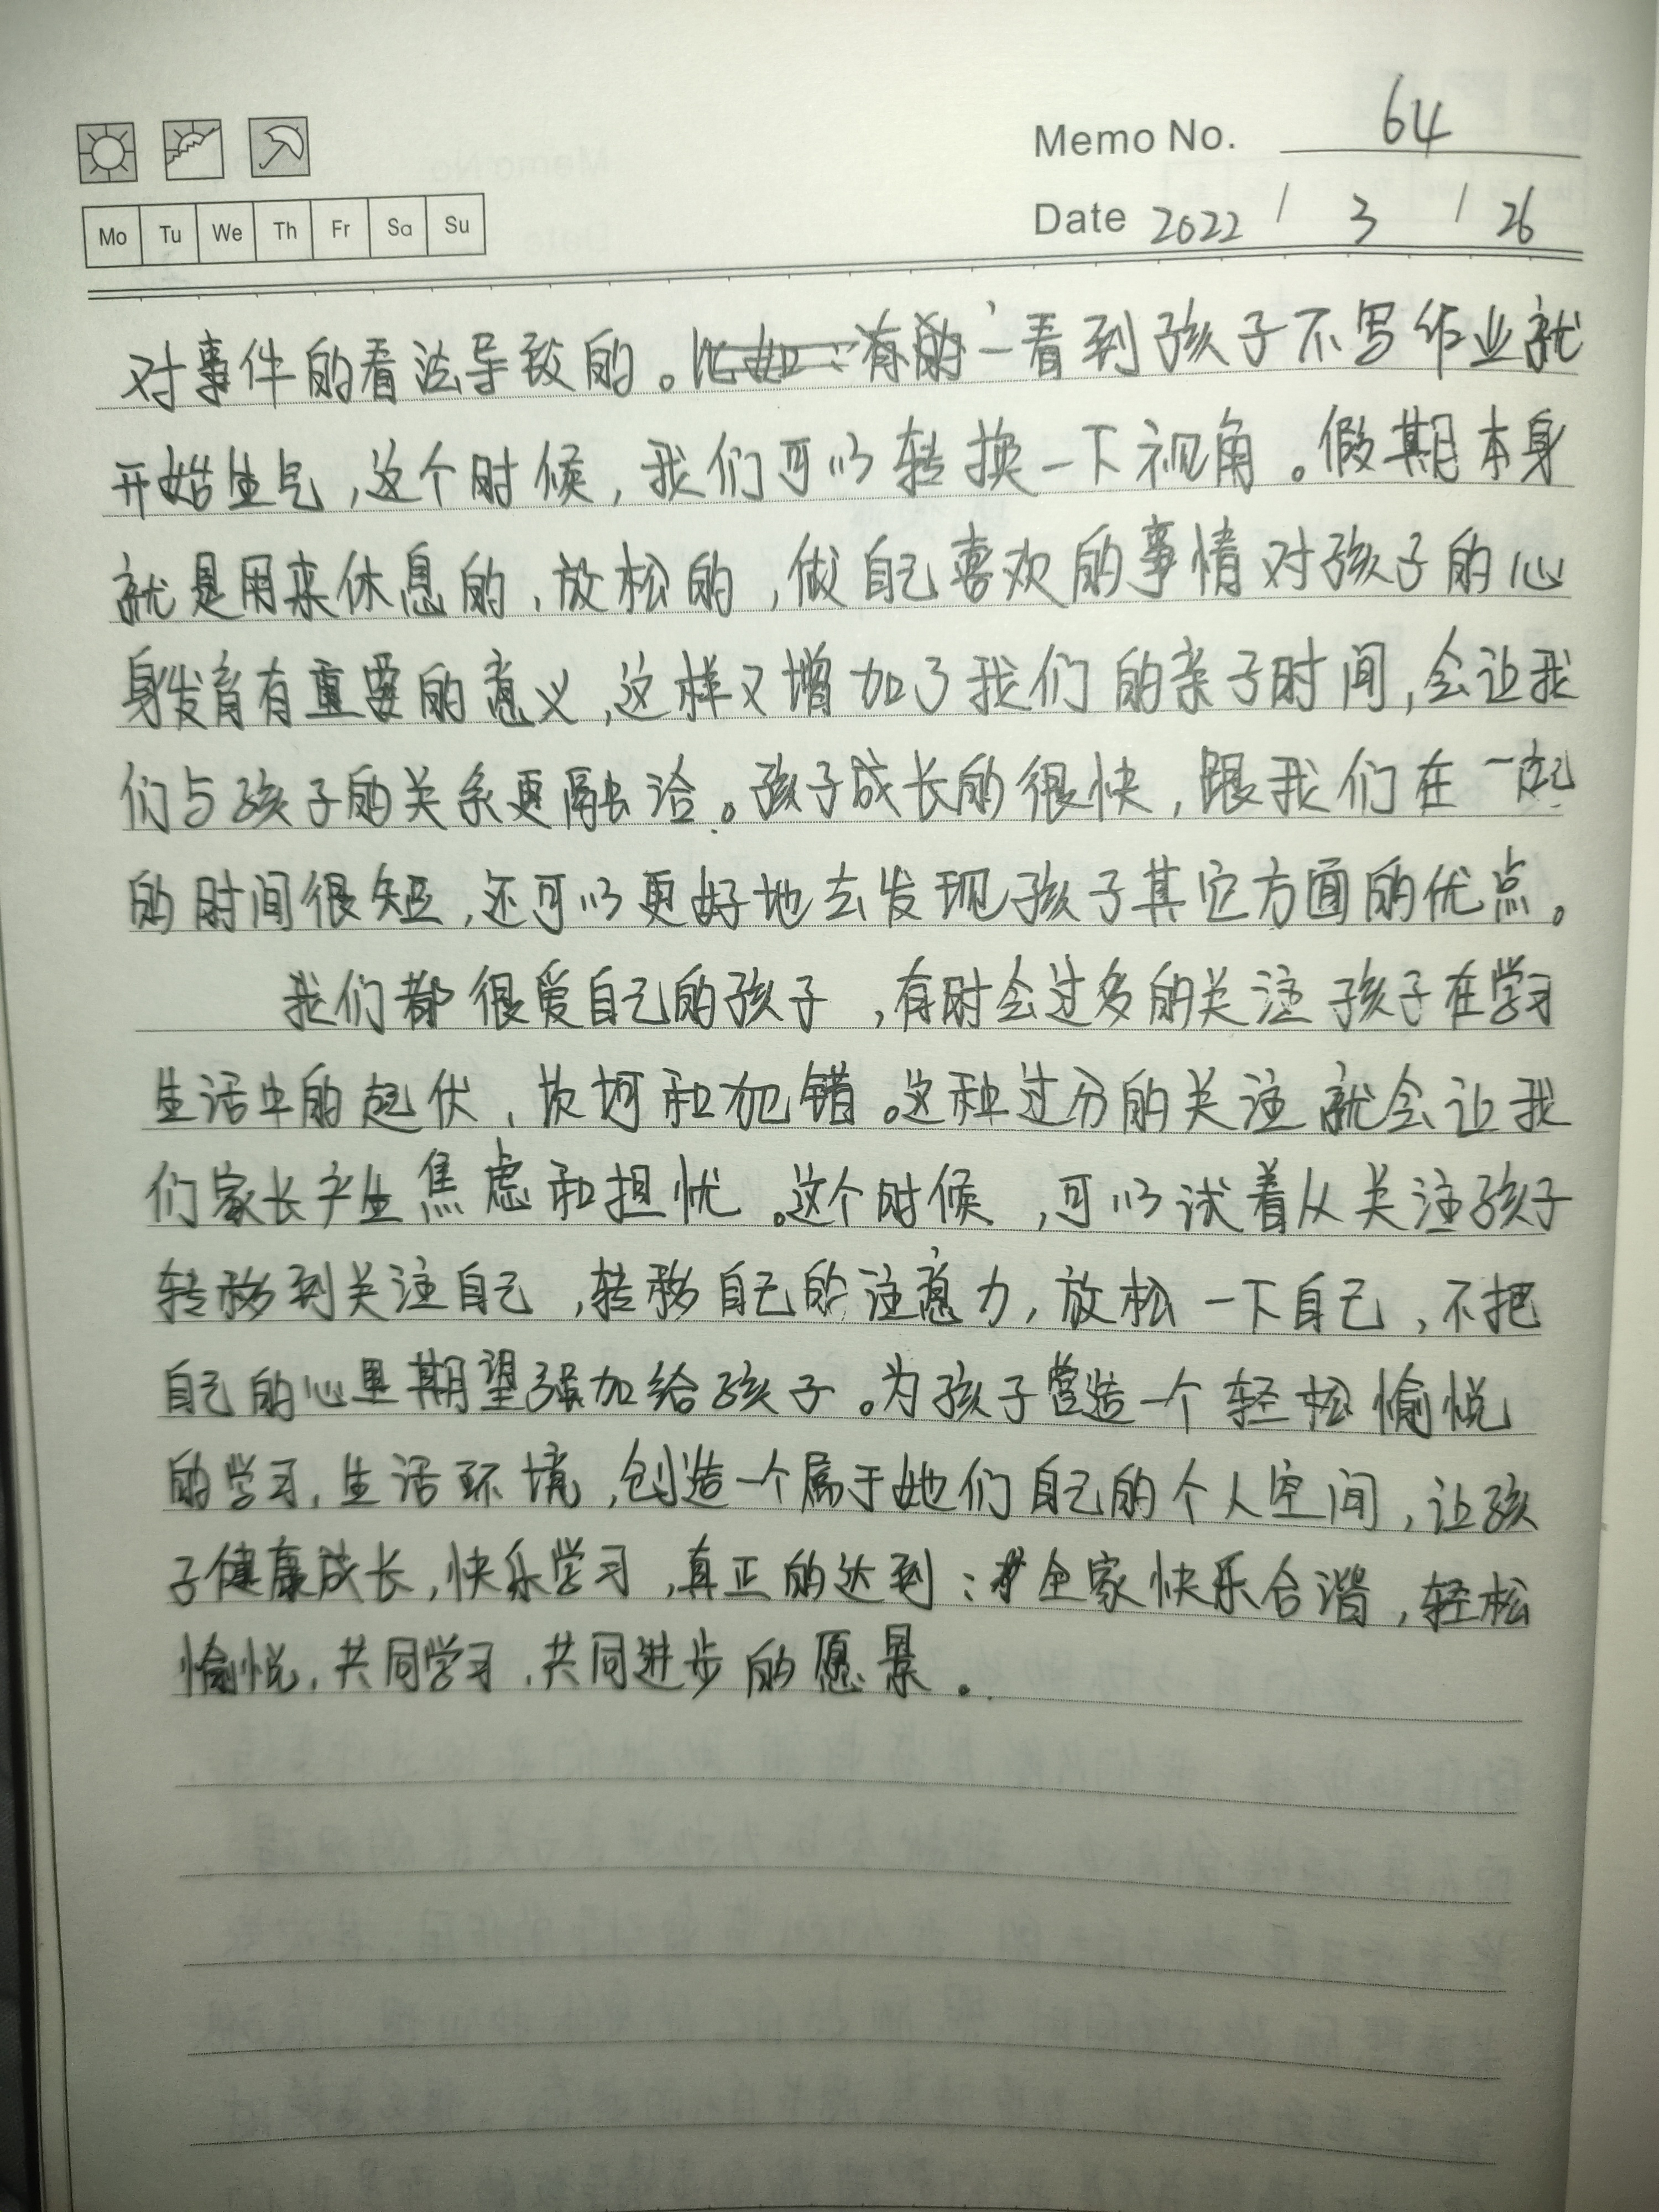 Memo No. 64
Mo Tu We Th Fr Sa Su
Date 2022 / 3 / 26
对事件的看法导致的。一看到孩子不写作业就
开始生气,这个时候,我们可以转换一下视角。假期本身
就是用来休息的,放松的,做自己喜欢的事情对孩子的心
身发育有重要的意义,这样又增加了我们的亲子时间,会让我
们与孩子的关系更融洽。孩子成长的很快,跟我们在一起
的时间很短,还可以更好地去发现孩子其它方面的优点。
我们都很爱自己的孩子,有时会过多的关注孩子在学习
生活中的起伏,坎坷和犯错。这种过分的关注就会让我
们家长产生焦虑和担忧。这个时候,可以试着从关注孩子
转移到关注自己,转移自己的注意力,放松一下自己,不把
自己的心里期望强加给孩子。为孩子营造一个轻松愉悦
的学习,生活环境,创造一个属于她们自己的个人空间,让孩
子健康成长,快乐学习,真正的达到:全家快乐合谐,轻松
愉悦,共同学习,共同进步的愿景。